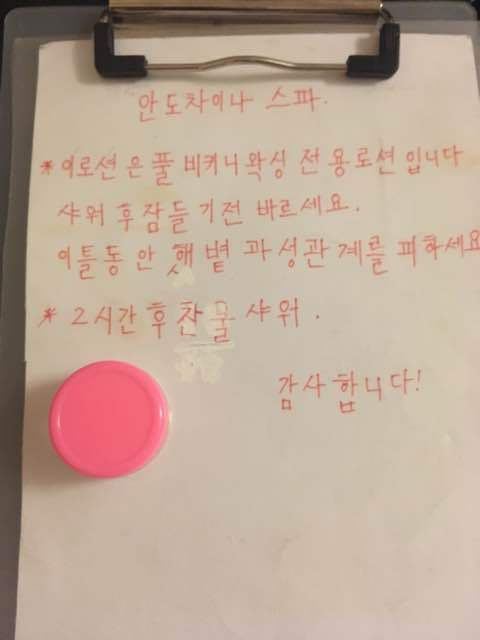 안도차이나 스파.
* 이로션은 풀 비키니왁싱 전용로션입니다
샤워 후 잠들기전 바르세요.
이틀동안 햇볕과 성관계를 피하세요
* 2시간후 찬물 샤워.
감사합니다!